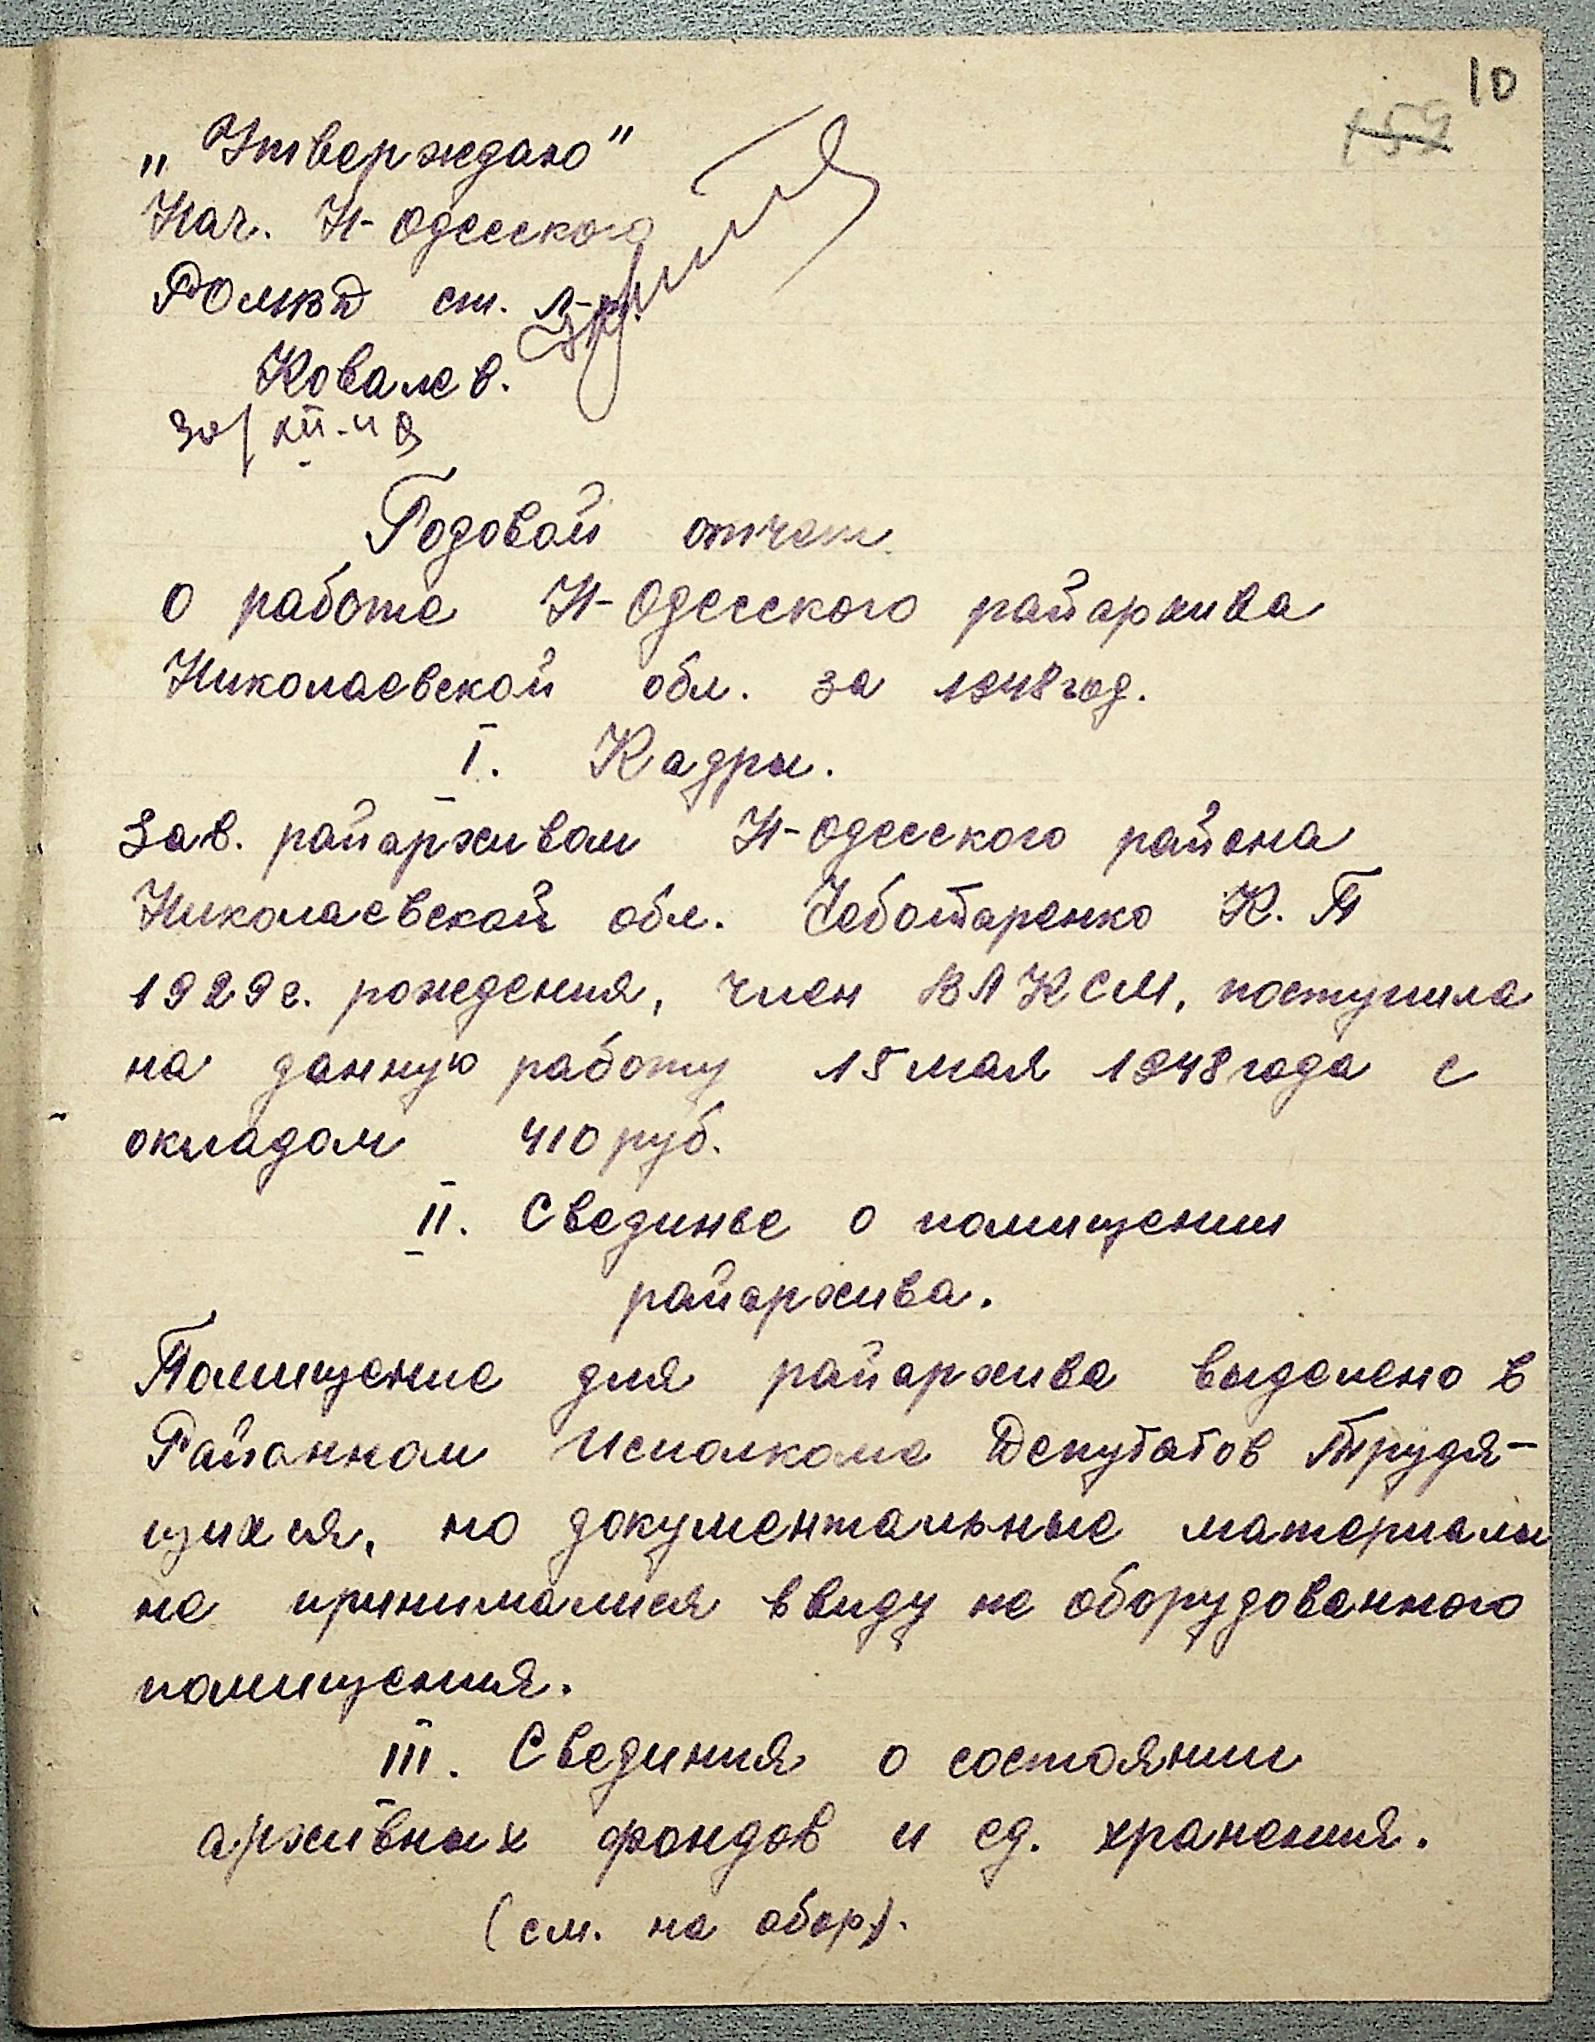 10
159
„Утверждаю"
Нач. Н-Одесского
РОМВД ст. л-т.
Ковалев.
30/XII-48
Годовой отчет
о работе Н-Одесского райархива
Николаевской обл. за 1948 год.
I. Кадры.
Зав. райархивом Н-Одесского района
Николаевской обл. Чеботаренко К. П
1929 г. рождения, член ВЛКСМ, поступила
на данную работу 15 мая 1948 года с
окладом 410 руб.
II. Свединье о помищении
райархива.
Помищение для райархива выделено в
Районном Исполкоме Депутатов Трудя-
щихся, но документальные материалы
не принимались ввиду не оборудованного
помищения.
III. Свединия о состоянии
архивных фондов и ед. хранения.
(см. на обор).